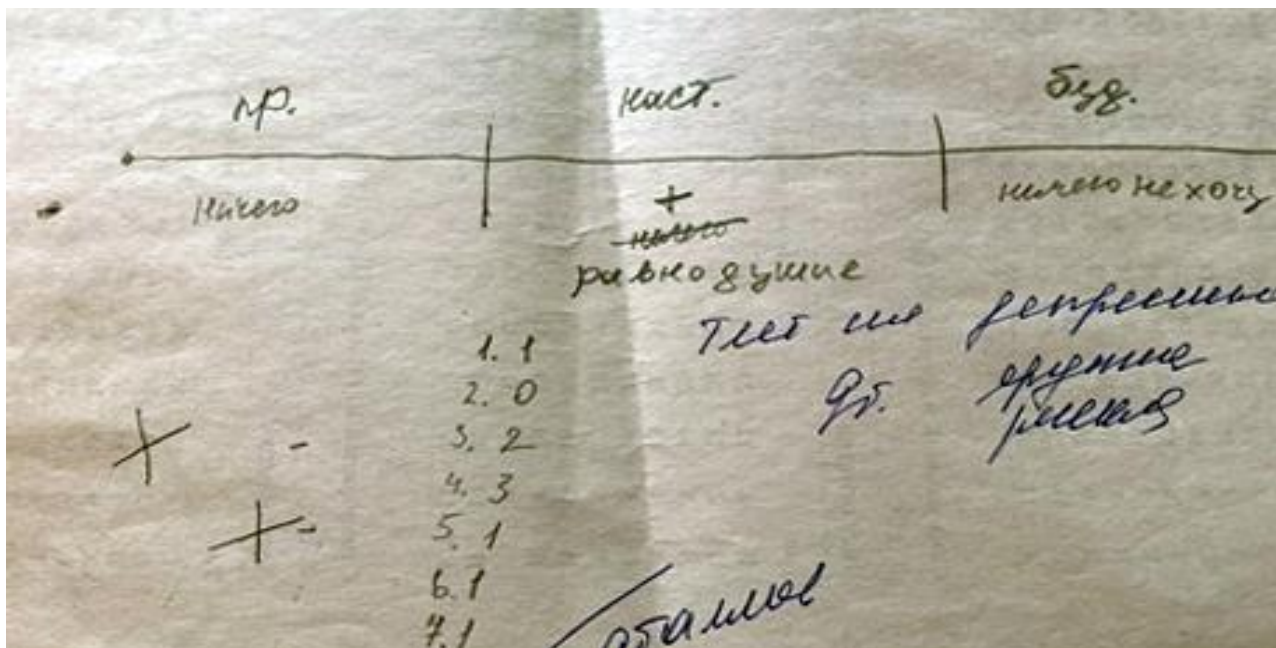 пр. наст. буд.
ничего + ничего не хочу
ничего
равнодушие
Тест на депрессию
группа
риска
1. 1
2. 0
3. 2
4. 3
5. 1
6. 1
7. 1
баллов